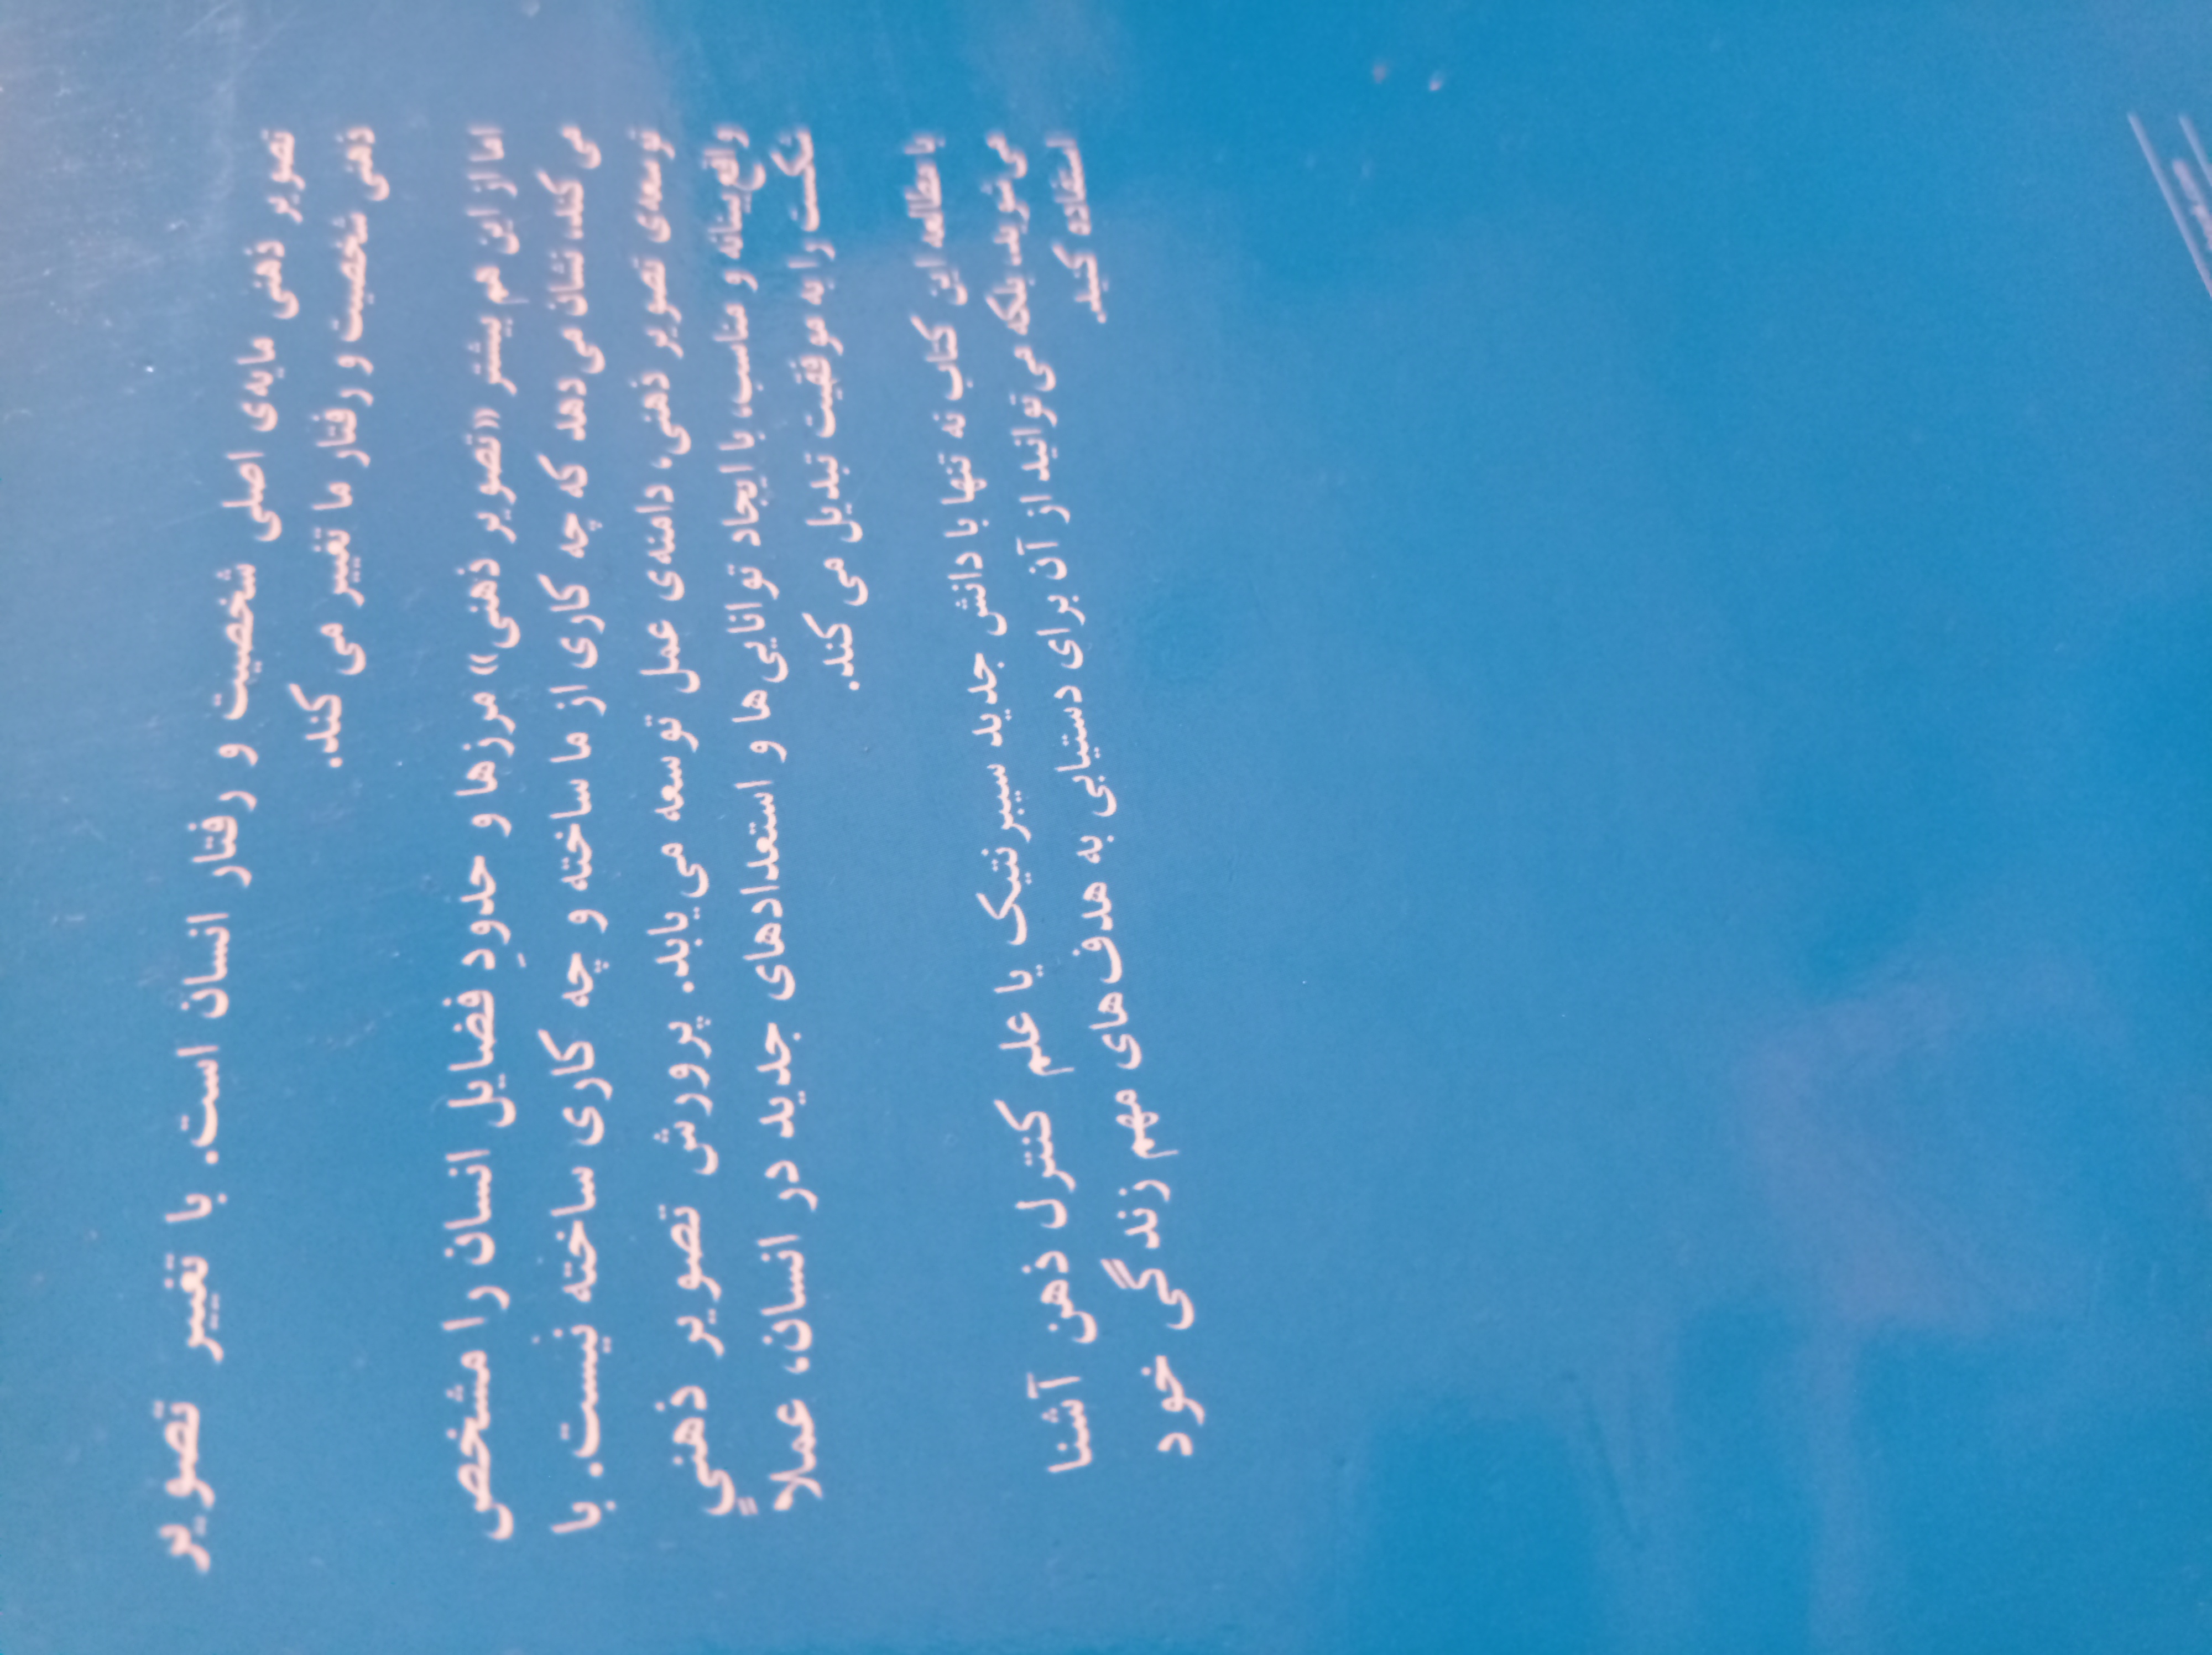 تصویر ذهنی مایه‌ی اصلی شخصیت و رفتار انسان است. با تغییر تصویر
ذهنی شخصیت و رفتار ما تغییر می کند.
اما از این هم بیشتر «تصویر ذهنی» مرزها و حدودِ فضایل انسان را مشخص
می کند، نشان می‌دهد که چه کاری از ما ساخته و چه کاری ساخته نیست. با
توسعه‌ی تصویر ذهنی، دامنه‌ی عمل توسعه می‌یابد. پرورش تصویر ذهنیِ
واقع‌بینانه و مناسب، با ایجاد توانایی‌ها و استعدادهای جدید در انسان، عملاً
شکست را به موفقیت تبدیل می کند.
با مطالعه این کتاب نه تنها با دانش جدید سیبرنتیک یا علم کنترل ذهن آشنا
می‌شوید، بلکه می‌توانید از آن برای دستیابی به هدف‌های مهم زندگی خود
استفاده کنید.